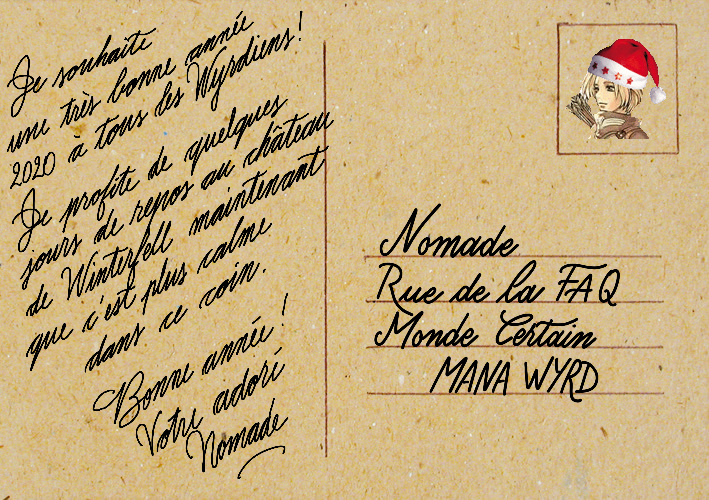 Je souhaite
une très bonne année
2020 à tous les Wyrdiens!
Je profite de quelques
jours de repos au château
de Winterfell maintenant
que c'est plus calme
dans ce coin.
Bonne année!
Votre adoré
Nomade
Nomade
Rue de la FAQ
Monde Certain
MANA WYRD